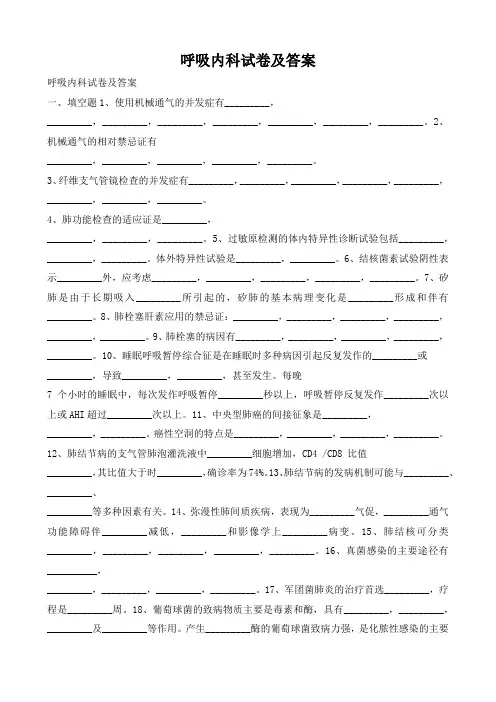 呼吸内科试卷及答案
呼吸内科试卷及答案
一、填空题1、使用机械通气的并发症有_________,
_________,_________,_________,_________,_________,_________,_________。2、
机械通气的相对禁忌证有
_________,_________,_________,_________,_________。
3、纤维支气管镜检查的并发症有_________,_________,_________,_________,_________,
_________,_________,_________。
4、肺功能检查的适应证是_________,
_________,_________,_________。5、过敏原检测的体内特异性诊断试验包括_________,
_________,_________。体外特异性试验是_________,_________。6、结核菌素试验阴性表
示_________外,应考虑_________,_________,_________,_________,_________。7、矽
肺是由于长期吸入_________所引起的,矽肺的基本病理变化是_________形成和伴有
_________。8、肺栓塞肝素应用的禁忌证:_________,_________,_________,_________,
_________,_________。9、肺栓塞的病因有_________,_________,_________,_________,
_________。10、睡眠呼吸暂停综合征是在睡眠时多种病因引起反复发作的_________或
_________,导致_________,_________,甚至发生。每晚
7 个小时的睡眠中,每次发作呼吸暂停_________秒以上,呼吸暂停反复发作_________次以
上或AHI超过_________次以上。11、中央型肺癌的间接征象是_________,
_________,_________。癌性空洞的特点是_________,_________,_________,_________。
12、肺结节病的支气管肺泡灌洗液中_________细胞增加,CD4 /CD8 比值
_________,其比值大于时_________,确诊率为74%。13、肺结节病的发病机制可能与_________、
_________、
_________等多种因素有关。14、弥漫性肺间质疾病,表现为_________气促,_________通气
功能障碍伴_________减低,_________和影像学上_________病变。15、肺结核可分类
_________,_________,_________,_________,_________。16、真菌感染的主要途径有
__________,
_________,_________,_________,_________。17、军团菌肺炎的治疗首选_________,疗
程是_________周。18、葡萄球菌的致病物质主要是毒素和酶,具有_________,_________,
_________及_________等作用。产生_________酶的葡萄球菌致病力强,是化脓性感染的主要